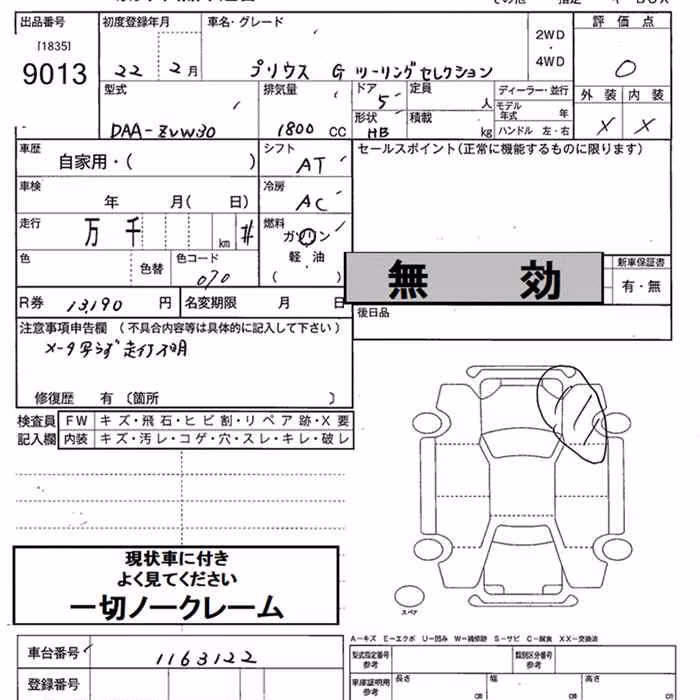 出品番号 初度登録年月 車名・グレード 2WD・4WD 評価点
[1835]
9013 22 2月 プリウス G ツーリングセレクション 0
外装 内装
X X
型式 排気量 ドア 定員 人 ディーラー・並行
DAA-ZVW30 1800 CC 5
モデル年式 年
形状 積載 kg ハンドル 左・右
HB
車歴 シフト セールスポイント(正常に機能するものに限ります)
自家用・( ) AT
車検 冷房
年 月( 日) AC
走行 燃料
万 千 km # ガソリン
軽油
( )
色 色替 色コード
070
無 効 新車保証書
有・無
R券 13,190 円 名変期限 月 日 後日品
注意事項申告欄 (不具合内容等は具体的に記入して下さい)
メータ写らず 走行不明
修復歴 有 〔箇所 〕
検査員 FW キズ・飛石・ヒビ割・リペア跡・X要
記入欄 内装 キズ・汚レ・コゲ・穴・スレ・キレ・破レ
現状車に付き
よく見てください
一切ノークレーム
スペア
A-キズ E-エクボ U-凹み W-補修跡 S-サビ C-腐食 XX-交換済
車台番号 1163122 型式指定番号 参考 類別区分番号 参考
登録番号 車庫証明用 参考 長さ cm 幅 cm 高さ cm